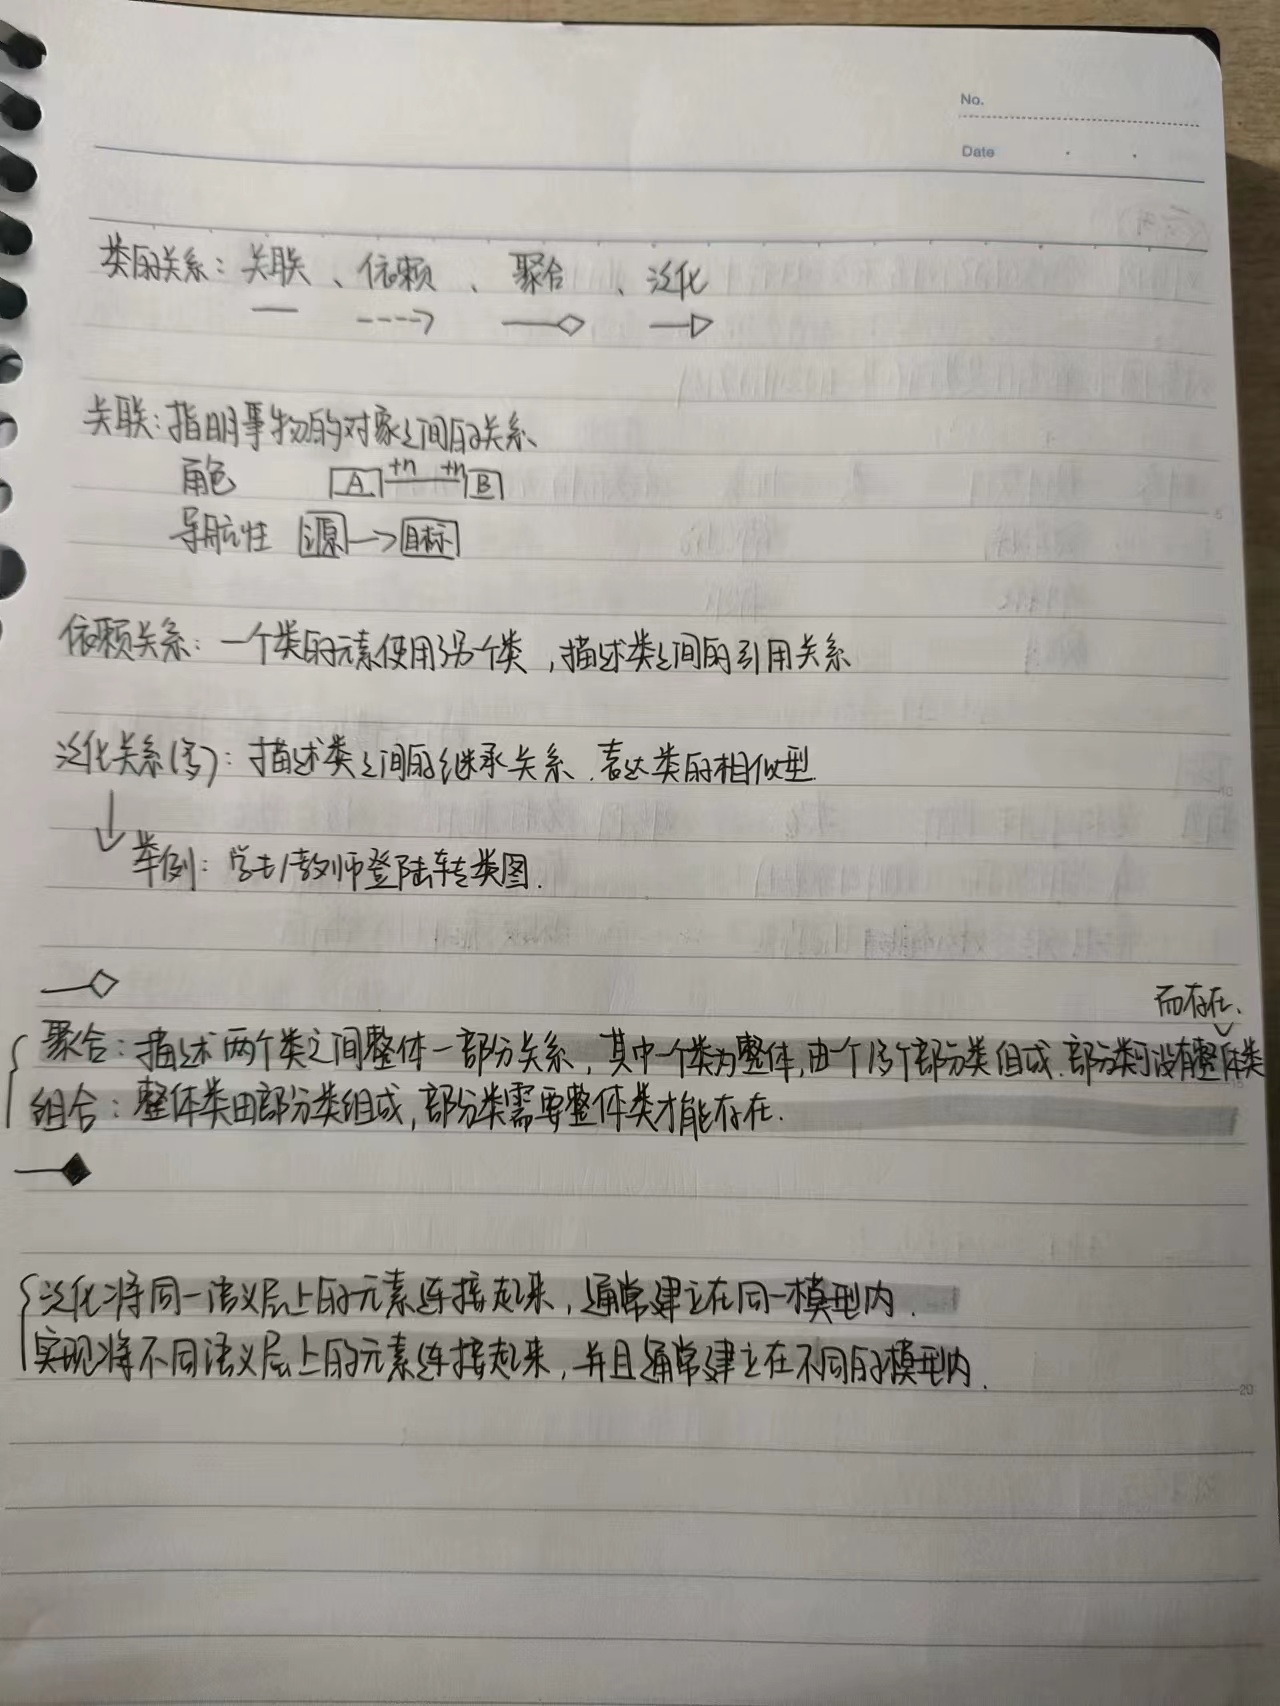 No.
Date
类的关系：关联、依赖、聚合、泛化
关联：指明事物的对象之间的关系
角色 A +n +n B
导航性 源 目标
依赖关系：一个类的元素使用另个类，描述类之间的引用关系
泛化关系()：描述类之间的继承关系.表达类的相似型.
举例：学生/教师登陆转类图.
而存在.
聚合：描述两个类之间整体一部分关系，其中一个类为整体,由一个多个部分类组成.部分类可没有整体类
组合：整体类由部分类组成,部分类需要整体类才能存在.
泛化将同一语义层上的元素连接起来，通常建立在同一模型内.
实现将不同语义层上的元素连接起来，并且通常建立在不同的模型内.
5
10
15
20